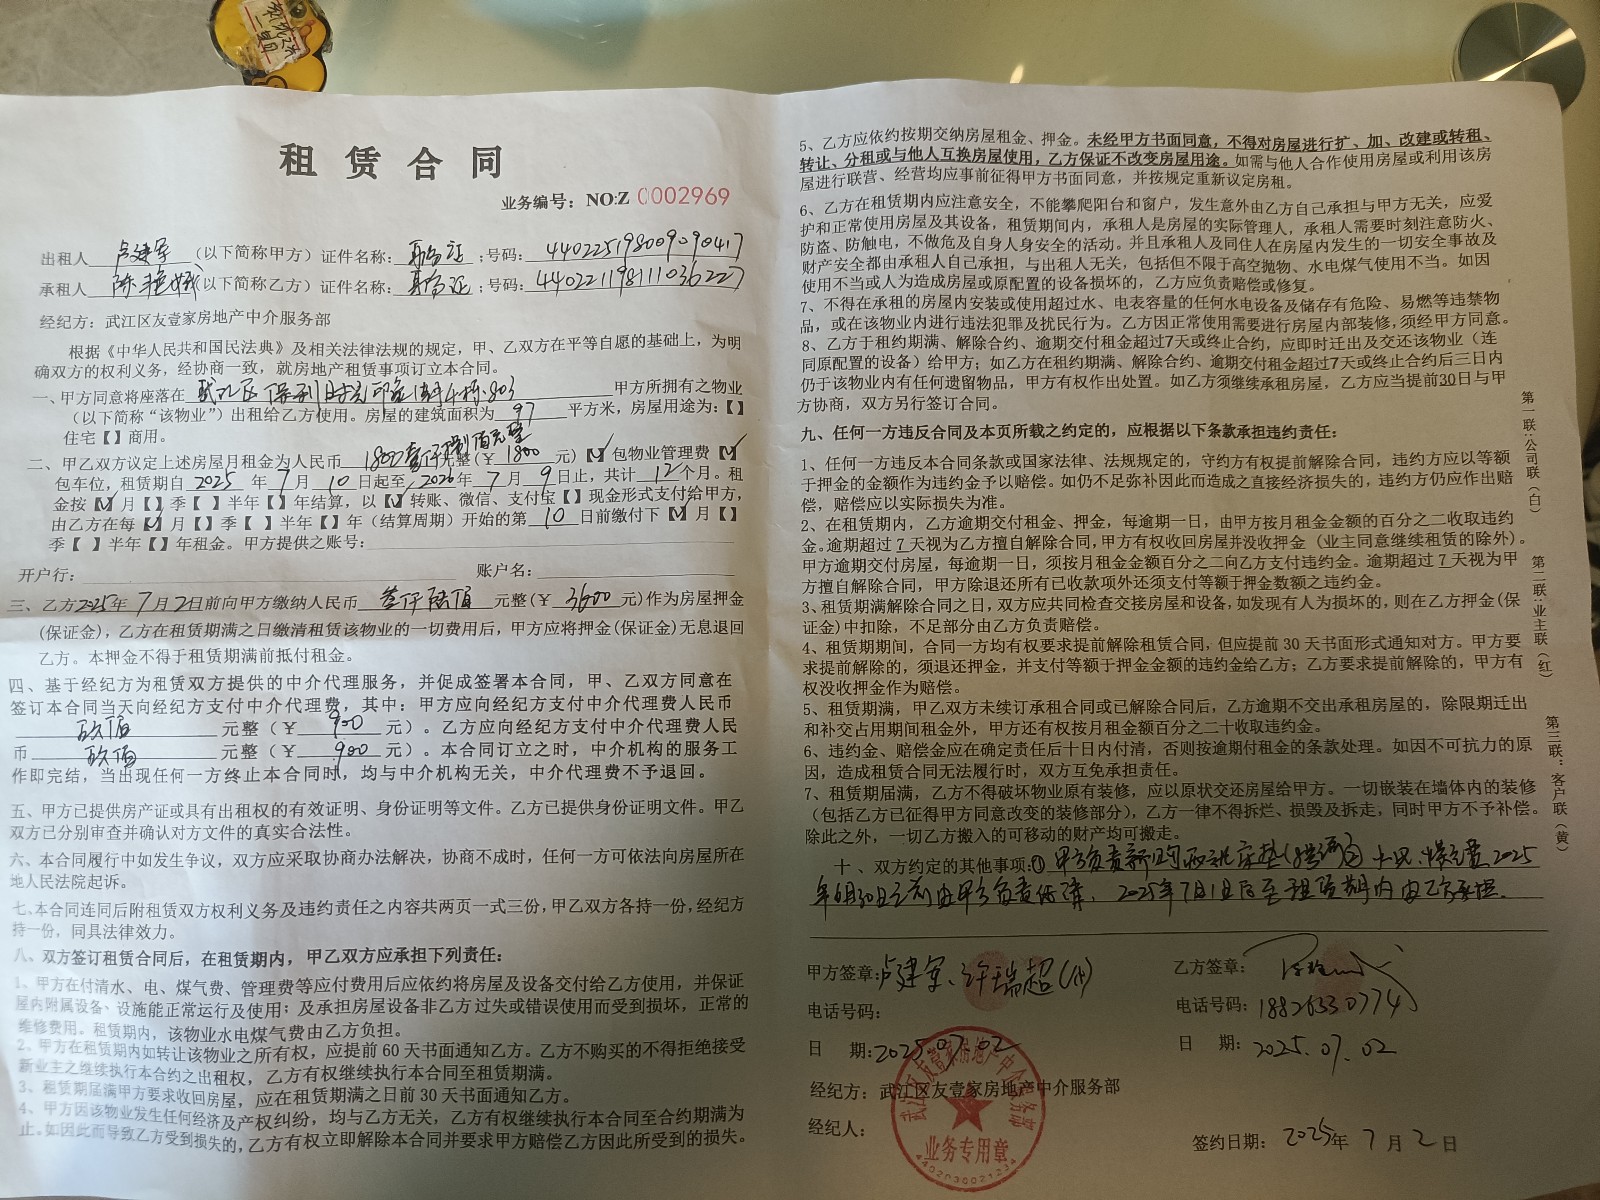 租 赁 合 同
业务编号：NO:Z 0002969
出租人 卢建军 （以下简称甲方）证件名称： 身份证 ；号码： 440225198009090417
承租人 陈艳娥（以下简称乙方）证件名称： 身份证 ；号码： 440221198111036227
经纪方：武江区友壹家房地产中介服务部
根据《中华人民共和国民法典》及相关法律法规的规定，甲、乙双方在平等自愿的基础上，为明
确双方的权利义务，经协商一致，就房地产租赁事项订立本合同。
一、甲方同意将座落在 武江区保利 803 甲方所拥有之物业
（以下简称“该物业”）出租给乙方使用。房屋的建筑面积为 97 平方米，房屋用途为：【】
住宅【】商用。
二、甲乙双方议定上述房屋月租金为人民币 1800 壹仟捌佰元整 元整（￥ 1800 元）【✓】包物业管理费【✓】
包车位，租赁期自 2025 年 7 月 10 日起至 2026 年 7 月 9 日止，共计 12 个月。租
金按【✓】月【】季【】半年【】年结算，以【✓】转账、微信、支付宝【】现金形式支付给甲方，
由乙方在每【✓】月【】季【】半年【】年（结算周期）开始的第 10 日前缴付下【✓】月【】
季【】半年【】年租金。甲方提供之账号：
开户行： 账户名：
三、乙方2025年 7月2日前向甲方缴纳人民币 叁仟陆佰 元整（￥ 3600 元)作为房屋押金
(保证金)，乙方在租赁期满之日缴清租赁该物业的一切费用后，甲方应将押金(保证金)无息退回
乙方。本押金不得于租赁期满前抵付租金。
四、基于经纪方为租赁双方提供的中介代理服务，并促成签署本合同，甲、乙双方同意在
签订本合同当天向经纪方支付中介代理费，其中：甲方应向经纪方支付中介代理费人民币
玖佰 元整（￥ 900 元）。乙方应向经纪方支付中介代理费人民
币 玖佰 元整（￥ 900 元）。本合同订立之时，中介机构的服务工
作即完结，当出现任何一方终止本合同时，均与中介机构无关，中介代理费不予退回。
五、甲方已提供房产证或具有出租权的有效证明、身份证明等文件。乙方已提供身份证明文件。甲乙
双方已分别审查并确认对方文件的真实合法性。
六、本合同履行中如发生争议，双方应采取协商办法解决，协商不成时，任何一方可依法向房屋所在
地人民法院起诉。
七、本合同连同后附租赁双方权利义务及违约责任之内容共两页一式三份，甲乙双方各持一份，经纪方
持一份，同具法律效力。
八、双方签订租赁合同后，在租赁期内，甲乙双方应承担下列责任：
1、甲方在付清水、电、煤气费、管理费等应付费用后应依约将房屋及设备交付给乙方使用，并保证
屋内附属设备、设施能正常运行及使用；及承担房屋设备非乙方过失或错误使用而受到损坏，正常的
维修费用。租赁期内，该物业水电煤气费由乙方负担。
2、甲方在租赁期内如转让该物业之所有权，应提前 60 天书面通知乙方。乙方不购买的不得拒绝接受
新业主之继续执行本合约之出租权，乙方有权继续执行本合同至租赁期满。
3、租赁期届满甲方要求收回房屋，应在租赁期满之日前 30 天书面通知乙方。
4、甲方因该物业发生任何经济及产权纠纷，均与乙方无关，乙方有权继续执行本合同至合约期满为
止。如因此而导致乙方受到损失的，乙方有权立即解除本合同并要求甲方赔偿乙方因此所受到的损失。
5、乙方应依约按期交纳房屋租金、押金。未经甲方书面同意，不得对房屋进行扩、加、改建或转租、
转让、分租或与他人互换房屋使用，乙方保证不改变房屋用途。如需与他人合作使用房屋或利用该房
屋进行联营、经营均应事前征得甲方书面同意，并按规定重新议定房租。
6、乙方在租赁期内应注意安全，不能攀爬阳台和窗户，发生意外由乙方自己承担与甲方无关，应爱
护和正常使用房屋及其设备，租赁期间内，承租人是房屋的实际管理人，承租人需要时刻注意防火、
防盗、防触电，不做危及自身人身安全的活动。并且承租人及同住人在房屋内发生的一切安全事故及
财产安全都由承租人自己承担，与出租人无关，包括但不限于高空抛物、水电煤气使用不当。如因
使用不当或人为造成房屋或原配置的设备损坏的，乙方应负责赔偿或修复。
7、不得在承租的房屋内安装或使用超过水、电表容量的任何水电设备及储存有危险、易燃等违禁物
品，或在该物业内进行违法犯罪及扰民行为。乙方因正常使用需要进行房屋内部装修，须经甲方同意。
8、乙方于租约期满、解除合约、逾期交付租金超过7天或终止合约，应即时迁出及交还该物业（连
同原配置的设备）给甲方；如乙方在租约期满、解除合约、逾期交付租金超过7天或终止合约后三日内
仍于该物业内有任何遗留物品，甲方有权作出处置。如乙方须继续承租房屋，乙方应当提前30日与甲
方协商，双方另行签订合同。
九、任何一方违反合同及本页所载之约定的，应根据以下条款承担违约责任：
1、任何一方违反本合同条款或国家法律、法规规定的，守约方有权提前解除合同，违约方应以等额
于押金的金额作为违约金予以赔偿。如仍不足弥补因此而造成之直接经济损失的，违约方仍应作出赔
偿，赔偿应以实际损失为准。
2、在租赁期内，乙方逾期交付租金、押金，每逾期一日，由甲方按月租金金额的百分之二收取违约
金。逾期超过 7 天视为乙方擅自解除合同，甲方有权收回房屋并没收押金（业主同意继续租赁的除外)。
甲方逾期交付房屋，每逾期一日，须按月租金金额百分之二向乙方支付违约金。逾期超过 7 天视为甲
方擅自解除合同，甲方除退还所有已收款项外还须支付等额于押金数额之违约金。
3、租赁期满解除合同之日，双方应共同检查交接房屋和设备，如发现有人为损坏的，则在乙方押金(保
证金)中扣除，不足部分由乙方负责赔偿。
4、租赁期期间，合同一方均有权要求提前解除租赁合同，但应提前 30 天书面形式通知对方。甲方要
求提前解除的，须退还押金，并支付等额于押金金额的违约金给乙方；乙方要求提前解除的，甲方有
权没收押金作为赔偿。
5、租赁期满，甲乙双方未续订承租合同或已解除合同后，乙方逾期不交出承租房屋的，除限期迁出
和补交占用期间租金外，甲方还有权按月租金额百分之二十收取违约金。
6、违约金、赔偿金应在确定责任后十日内付清，否则按逾期付租金的条款处理。如因不可抗力的原
因，造成租赁合同无法履行时，双方互免承担责任。
7、租赁期届满，乙方不得破坏物业原有装修，应以原状交还房屋给甲方。一切嵌装在墙体内的装修
（包括乙方已征得甲方同意改变的装修部分），乙方一律不得拆烂、损毁及拆走，同时甲方不予补偿。
除此之外，一切乙方搬入的可移动的财产均可搬走。
十、双方约定的其他事项：① 甲方负责新购两张床垫 ② 水电、煤气费 2025
年6月30日之前由甲方负责结清，2025年7月1日后至租赁期内由乙方承担.
甲方签章： 卢建军、许瑞超(代)
乙方签章：
电话号码：
电话号码： 18826330774
日 期：2025.07.02
日 期： 2025.07.02
经纪方：武江区友壹家房地产中介服务部
经纪人：
签约日期： 2025年 7 月 2 日
武江区友壹家房地产中介服务部
业务专用章
第一联：公司联（白）
第二联：业主联（红）
第三联：客户联（黄）